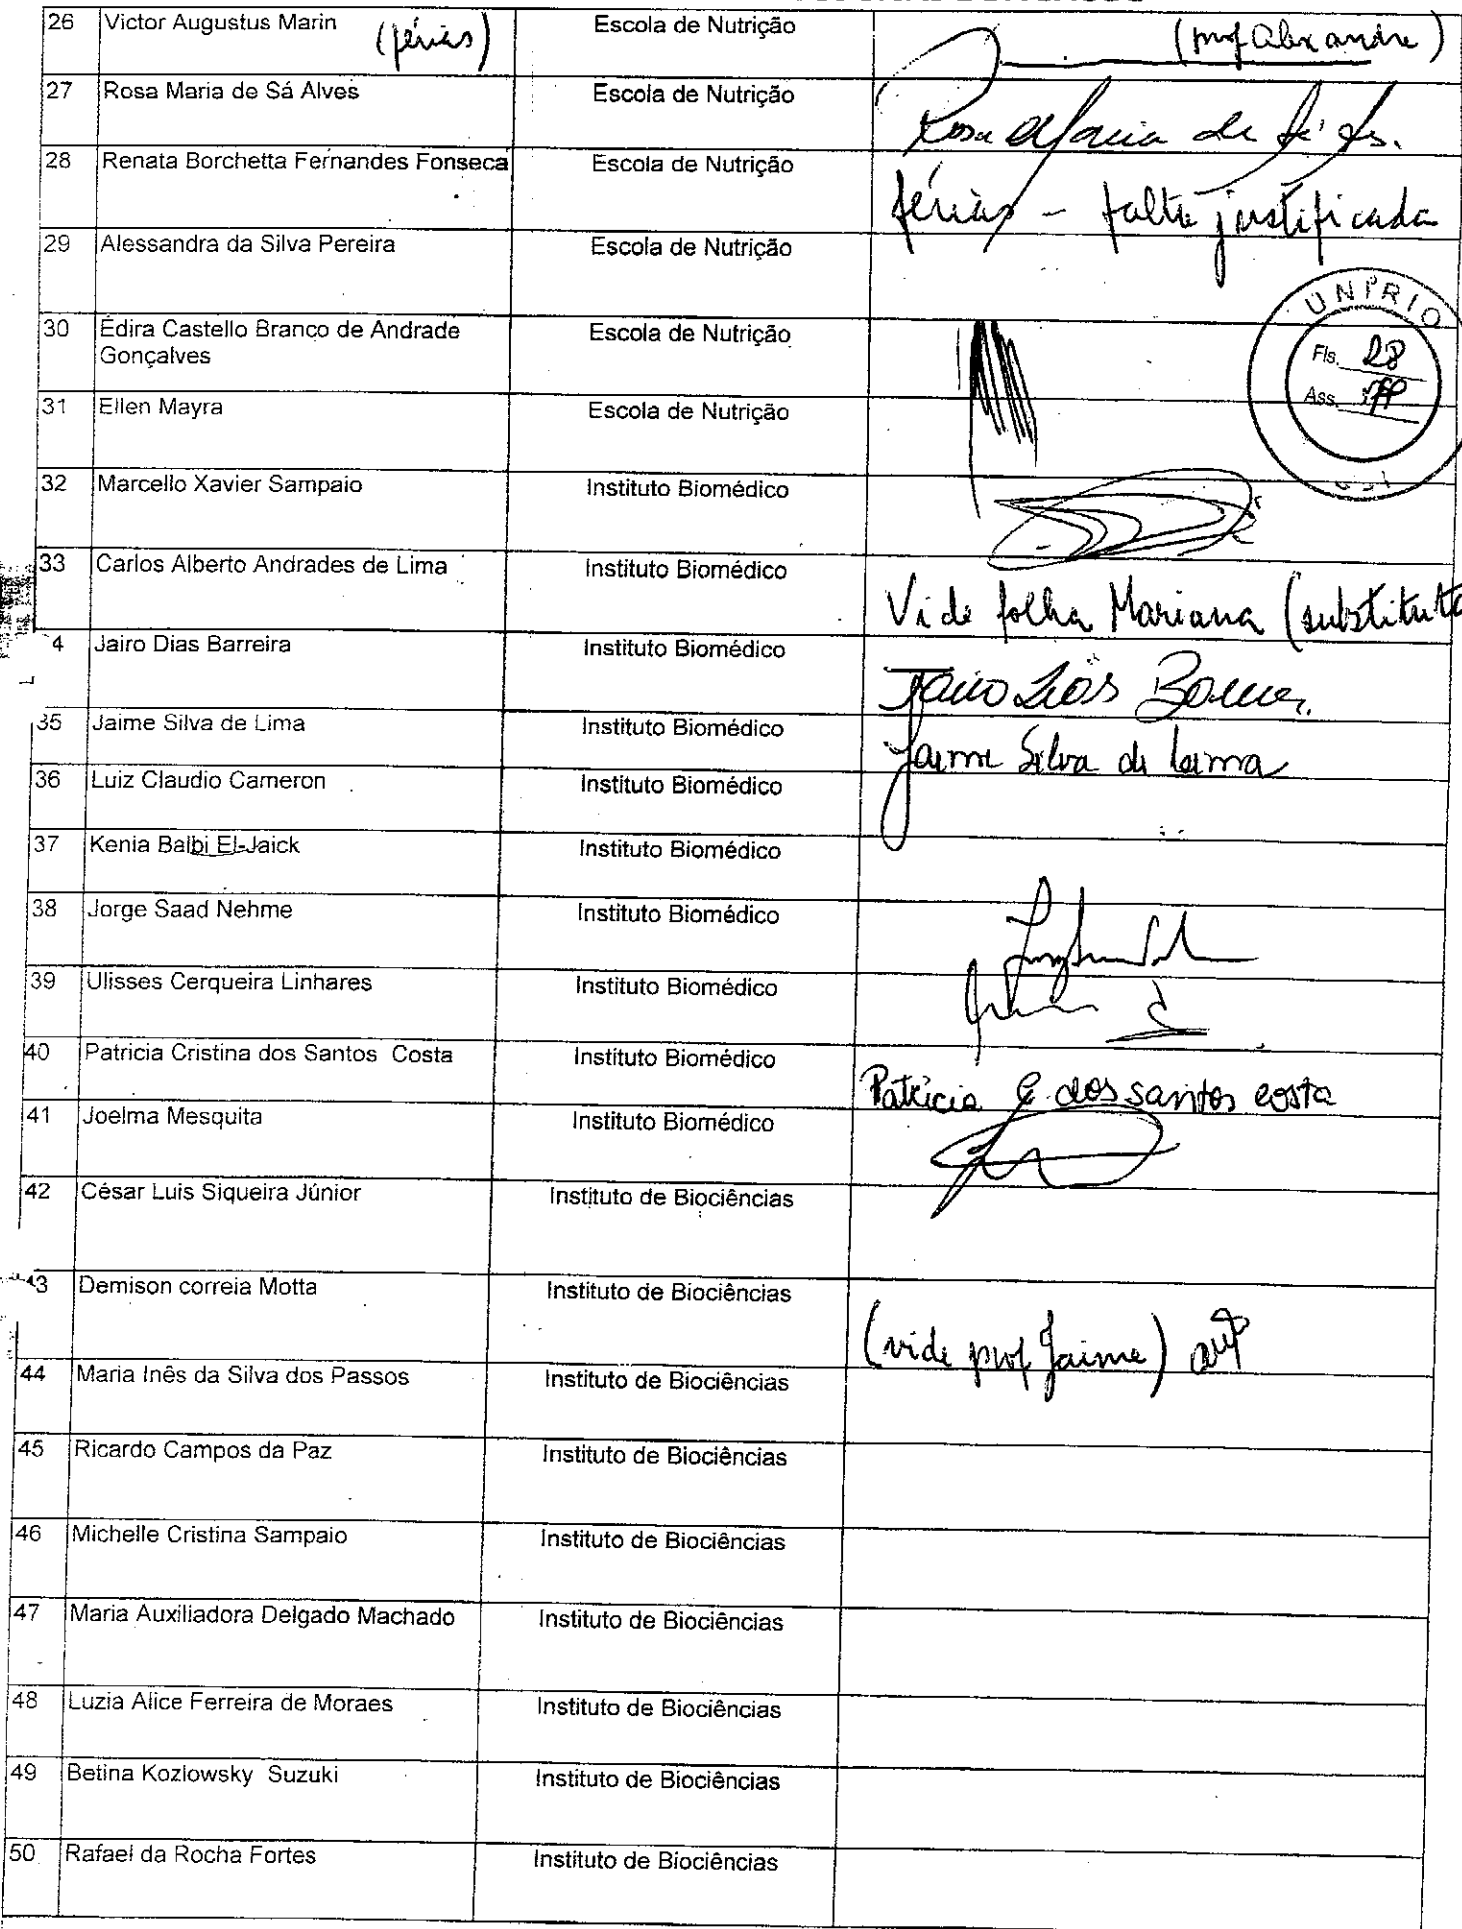 26 Victor Augustus Marin (férias) Escola de Nutrição (prof Alexandre)
27 Rosa Maria de Sá Alves Escola de Nutrição Rosa Maria de Sá
28 Renata Borchetta Fernandes Fonseca Escola de Nutrição férias - falta justificada
29 Alessandra da Silva Pereira Escola de Nutrição
UNIRIO
30 Édira Castello Branco de Andrade Gonçalves Escola de Nutrição
Fls. 28
Ass.
31 Ellen Mayra Escola de Nutrição
32 Marcello Xavier Sampaio Instituto Biomédico
33 Carlos Alberto Andrades de Lima Instituto Biomédico Vide folha Mariana (substituta
4 Jairo Dias Barreira Instituto Biomédico Jairo Dias
35 Jaime Silva de Lima Instituto Biomédico Jaime Silva de Lima
36 Luiz Claudio Cameron Instituto Biomédico
37 Kenia Balbi El-Jaick Instituto Biomédico
38 Jorge Saad Nehme Instituto Biomédico
39 Ulisses Cerqueira Linhares Instituto Biomédico
40 Patricia Cristina dos Santos Costa Instituto Biomédico Patrícia C. dos santos costa
41 Joelma Mesquita Instituto Biomédico
42 César Luis Siqueira Júnior Instituto de Biociências
43 Demison correia Motta Instituto de Biociências (vide prof Jaime)
44 Maria Inês da Silva dos Passos Instituto de Biociências
45 Ricardo Campos da Paz Instituto de Biociências
46 Michelle Cristina Sampaio Instituto de Biociências
47 Maria Auxiliadora Delgado Machado Instituto de Biociências
48 Luzia Alice Ferreira de Moraes Instituto de Biociências
49 Betina Kozlowsky Suzuki Instituto de Biociências
50 Rafael da Rocha Fortes Instituto de Biociências